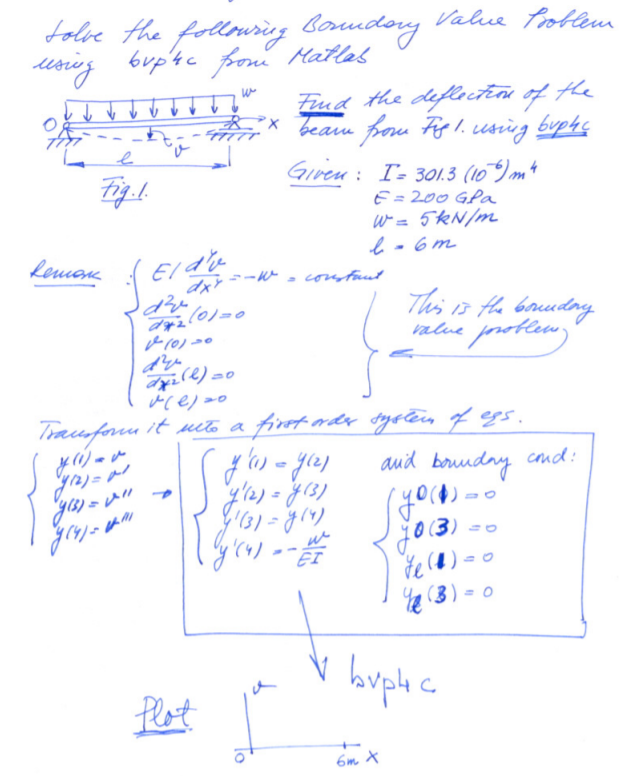 Solve the following Boundary Value Problem
using bvp4c from Matlab
w
O
x
v
l
Fig.1.
Find the deflection of the
beam from Fig 1. using bvp4c
Given : I = 301.3 (10⁻⁶) m⁴
E = 200 GPa
w = 5 kN/m
l = 6 m
Remark :
EI d⁴v/dx⁴ = -w = constant
d²v/dx² (0) = 0
v(0) = 0
d²v/dx² (l) = 0
v(l) = 0
This is the boundary
value problem
Transform it into a first order system of eqs.
y(1) = v
y(2) = v'
y(3) = v''
y(4) = v'''
y'(1) = y(2)
y'(2) = y(3)
y'(3) = y(4)
y'(4) = - w/EI
and boundary cond:
y0(1) = 0
y0(3) = 0
yl(1) = 0
yl(3) = 0
bvp4c
Plot
v
0
6m x